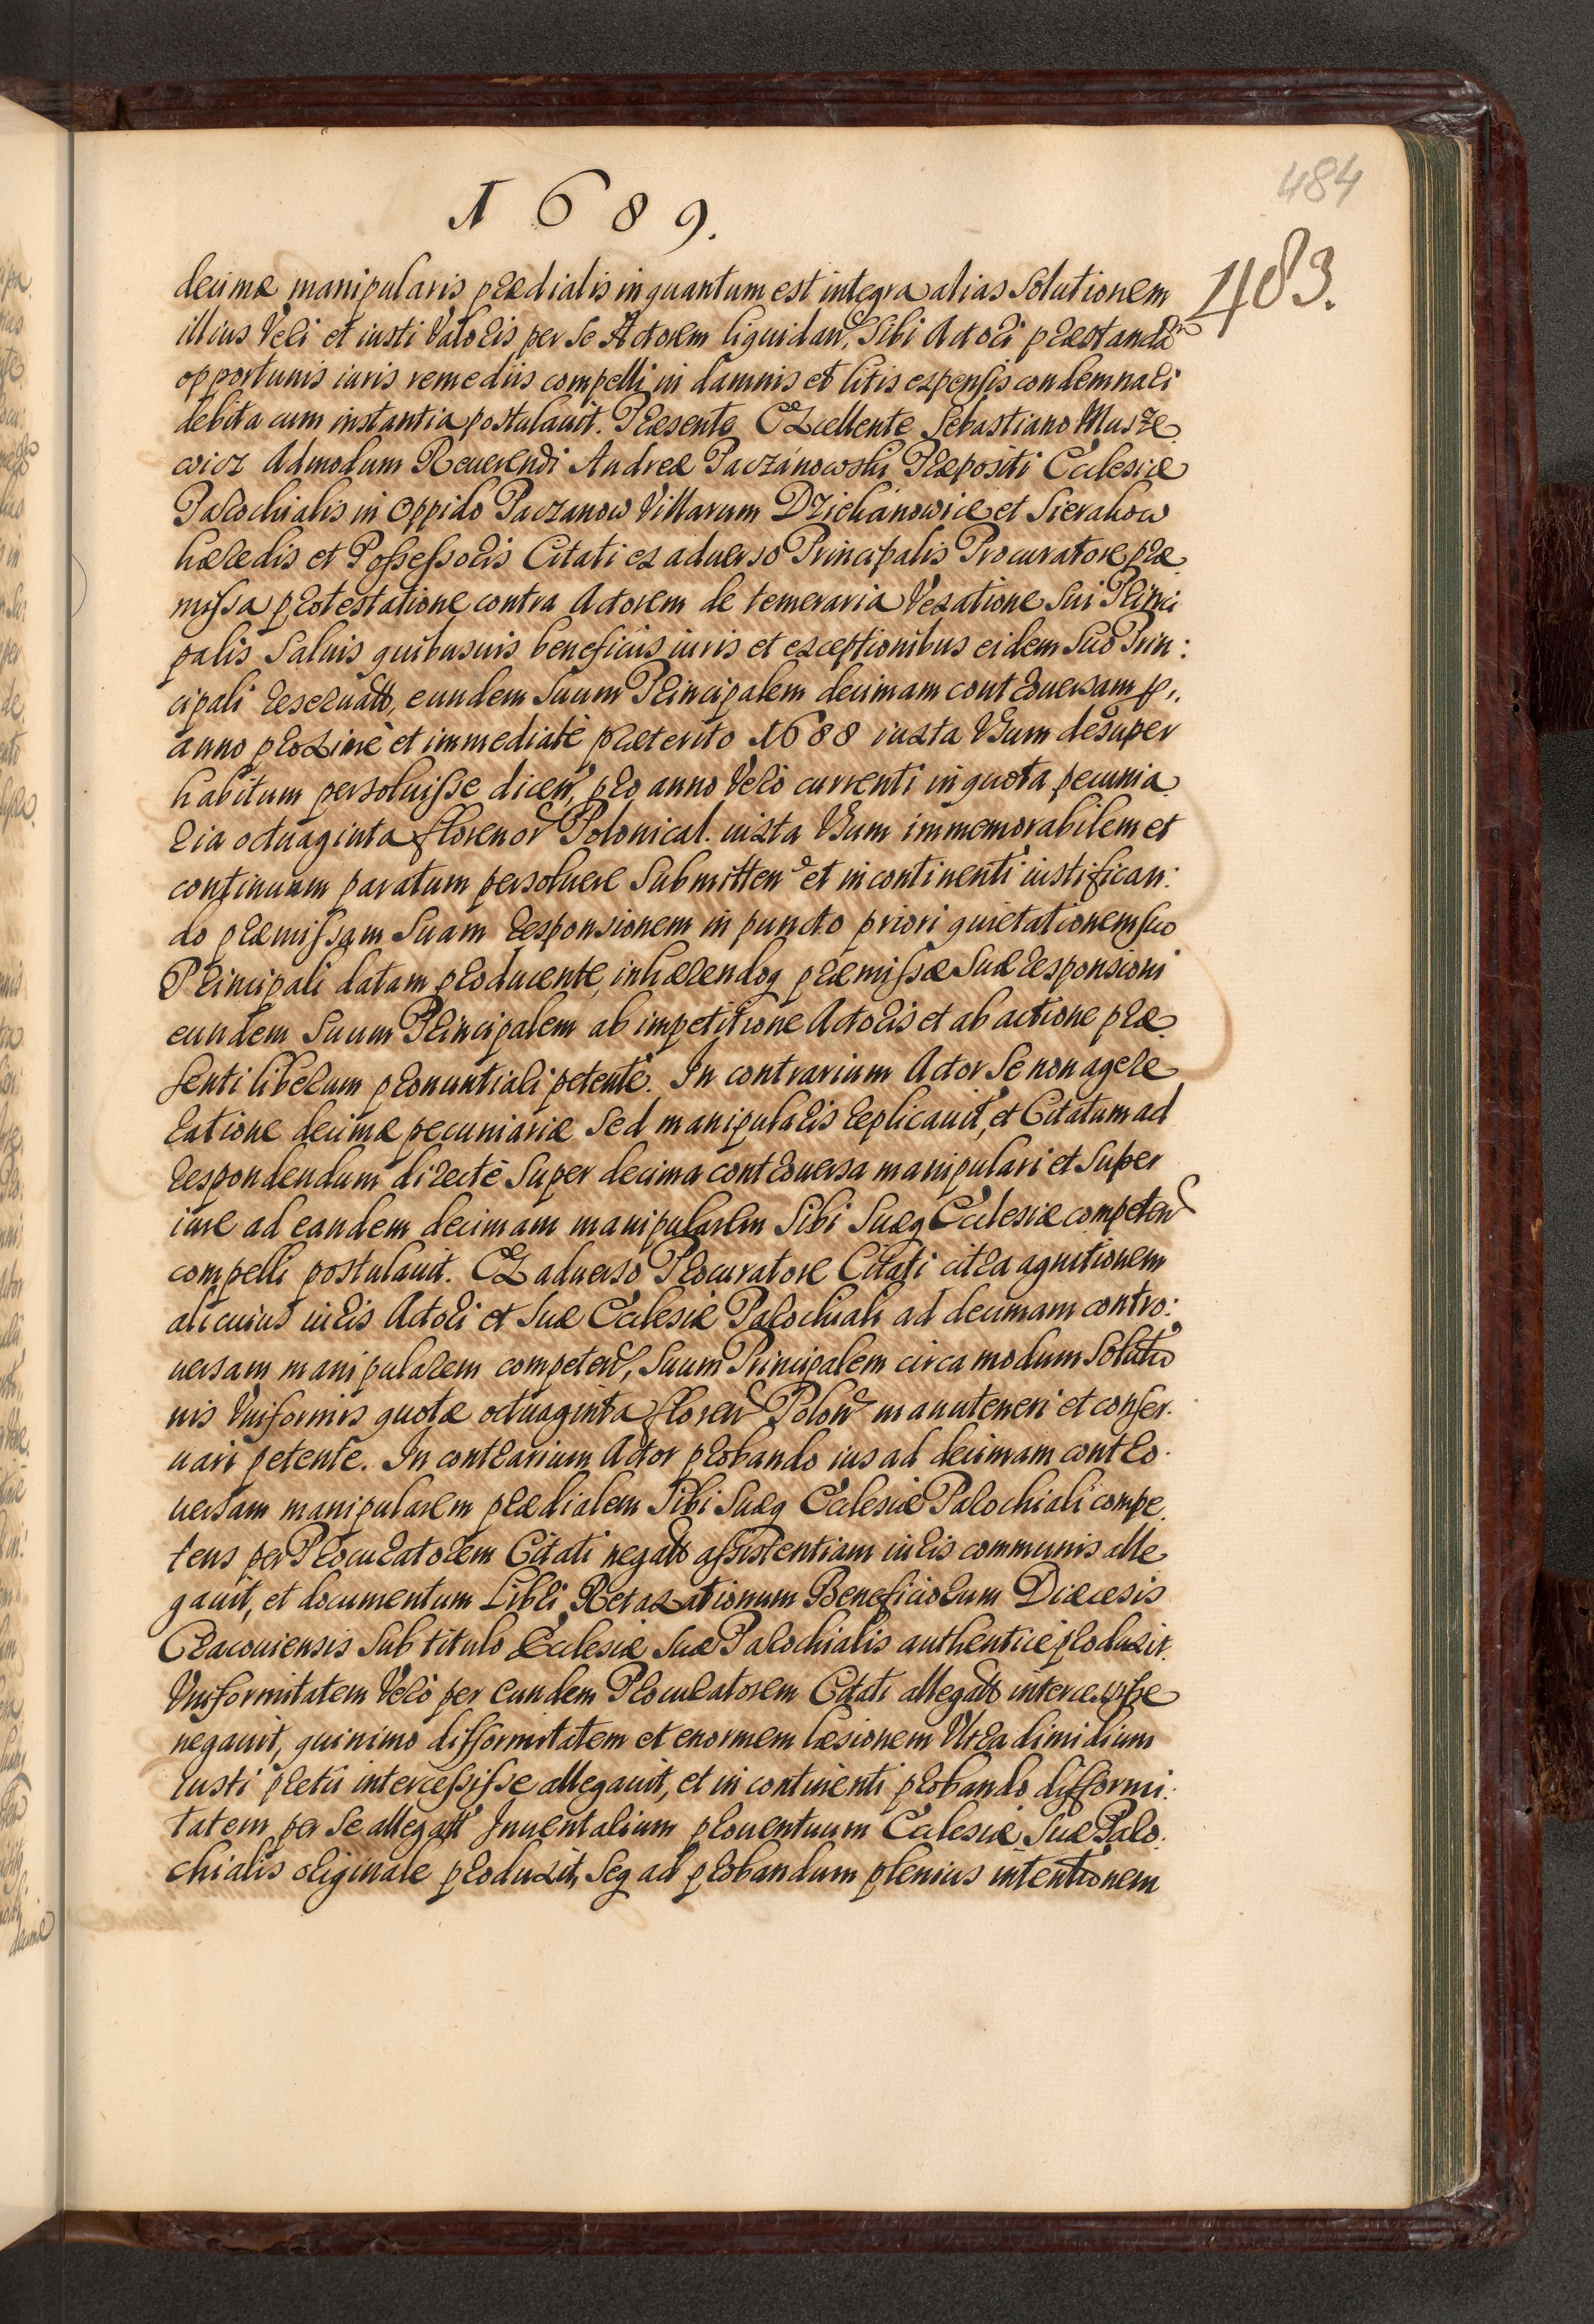 484
1689.
483.
decimæ manipularis prædialis inquantum est integra alias Solutionem
illius Veri et iusti Valoris per Se Actorem liquidan, Sibi Actori præstandam
opportunis iuris remediis compelli in damnis et litis expensis condemnari
debita cum instantia postulauit. Præsente Excellente Sebastiano Musze
wicz Admodum Reuerendi Andreæ Paczanowski Præpositi Ecclesiæ
Parochialis in Oppido Paczanow Villarum Dziekanowice et Sierakow
hæredis et Possessoris Citati ex aduerso Principalis Procuratore præ
missa protestatione contra Actorem de temeraria Vexatione Sui Princi
palis Saluis quibusuis beneficiis iuris et exceptionibus eidem Suo Prin:
cipali reseruatt, eundem Suum Principalem decimam controuersam p,
anno proxime et immediatè præterito 1688 iuxta Vsum desuper
habitum persoluisse dicen, pro anno Verò currenti in quota pecunia
ria octuaginta florenor Polonical. iuxta Vsum immemorabilem et
continuum paratum persoluere Submitten et in continenti iustifican:
do præmissam Suam responsionem in puncto priori quietationem suo
Principali datam producente, inhærendoq præmissæ Suæ responsioni
eundem Suum Principalem ab impetitione Actoris et ab actione præ
senti liberum pronuntiari petente. In contrarium Actor Se non agere
ratione decimæ pecuniariæ Sed manipularis replicauit, et Citatum ad
respondendum directè Super decima controuersa manipulari et Super
iure ad eandem decimam manipularem Sibi Suæq Ecclesiæ competen
compelli postulauit. Ex aduerso Procuratore Citati citra agnitionem
alicuius iuris Actori et Suæ Ecclesiæ Parochiali ad decimam contro:
uersam manipularem competen, Suum Principalem circa modum Solutio
nis Vniformis quotæ octuaginta floren Polon manuteneri et conser.
uari petente. In contrarium Actor probando ius ad decimam contro.
uersam manipularem prædialem Sibi Suæq Ecclesiæ Parochiali compe.
tens per Procuratorem Citati negatt assistentiam iuris communis alle
gauit, et documentum Libri Retaxationum Beneficiorum Diæcesis
Cracouiensis Sub titulo Ecclesiæ Suæ Parochialis authentice produxit.
Vniformitatem Verò per eundem Procuratorem Citati allegatt intercessisse
negauit, quinimo difformitatem et enormem læsionem Vltra dimidium
iusti pretii intercessisse allegauit, et in continenti probando difformi.
tatem per Se allegatt Inuentarium prouentuum Ecclesiæ Suæ Paro.
chialis originale produxit, Seq ad probandum plenius intentionem